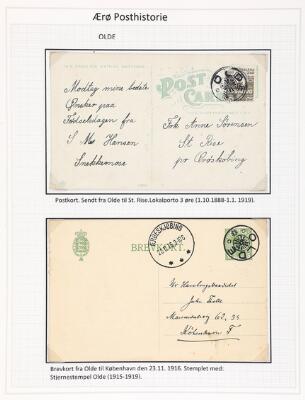 Ærø Posthistorie
OLDE
POST
CARD
Modtag mine bedste
Ønsker paa
Fødselsdagen fra
S. M. Hansen
Snekkemose
Frk. Anne Sørensen
St Rise
pr Ærøskøbing
Postkort. Sendt fra Olde til St. Rise.Lokalporto 3 øre (1.10.1888-1.1. 1919).
BREVKORT.
ÆRØESKJØBING
Hr
John
62, 34
København F
Brevkort fra Olde til København den 23.11. 1916. Stemplet med:
Stjernestempel Olde (1915-1919).